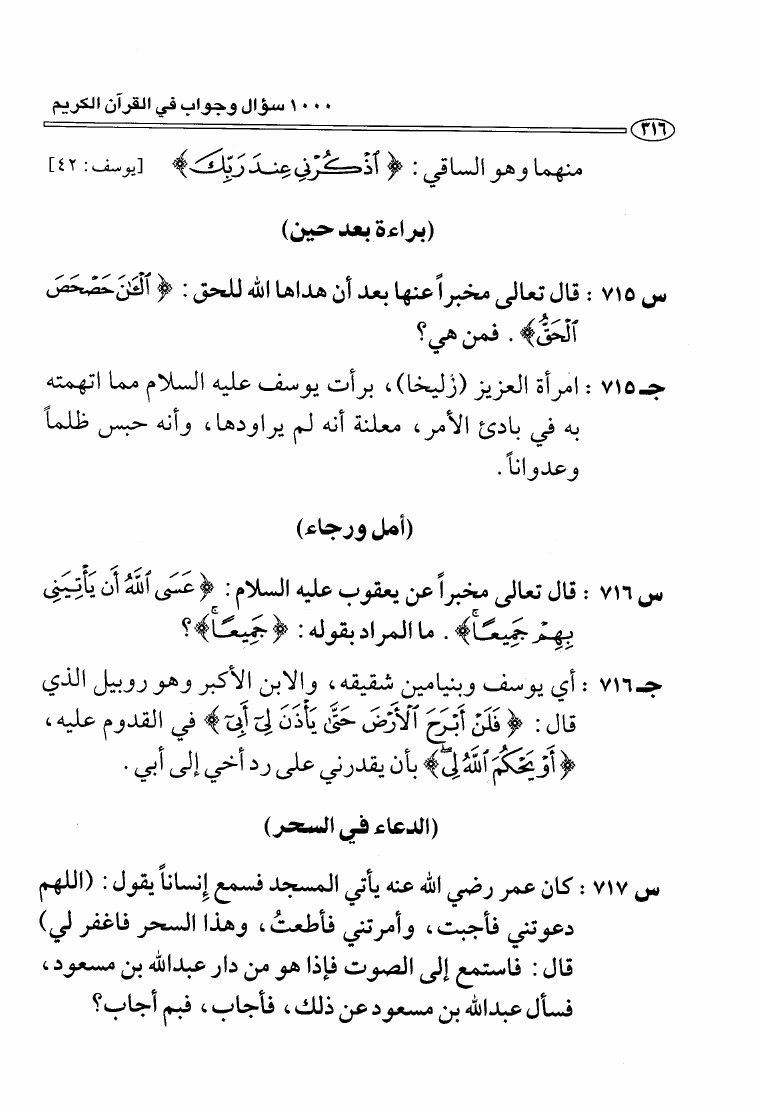 ١٠٠٠ سؤال وجواب في القرآن الكريم
٣١٦
منهما وهو الساقي: ﴿ ٱذْكُرْنِي عِندَ رَبِّكَ ﴾ [يوسف: ٤٢]
(براءة بعد حين)
س ٧١٥ : قال تعالى مخبراً عنها بعد أن هداها الله للحق: ﴿ ٱلْـَٰٔنَ حَصْحَصَ
ٱلْحَقُّ ﴾. فمن هي؟
جـ ٧١٥ : امرأة العزيز (زُليخا)، برأت يوسف عليه السلام مما اتهمته
به في بادئ الأمر، معلنة أنه لم يراودها، وأنه حبس ظلماً
وعدواناً.
(أمل ورجاء)
س ٧١٦ : قال تعالى مخبراً عن يعقوب عليه السلام: ﴿ عَسَى ٱللَّهُ أَن يَأْتِيَنِى
بِهِمْ جَمِيعًاۚ ﴾. ما المراد بقوله: ﴿ جَمِيعًاۚ ﴾؟
جـ ٧١٦ : أي يوسف وبنيامين شقيقه، والابن الأكبر وهو روبيل الذي
قال: ﴿ فَلَنْ أَبْرَحَ ٱلْأَرْضَ حَتَّىٰ يَأْذَنَ لِىٓ أَبِىٓ ﴾ في القدوم عليه،
﴿ أَوْ يَحْكُمَ ٱللَّهُ لِىۖ ﴾ بأن يقدرني على رد أخي إلى أبي.
(الدعاء في السحر)
س ٧١٧ : كان عمر رضي الله عنه يأتي المسجد فسمع إنساناً يقول: (اللهم
دعوتني فأجبت، وأمرتني فأطعتُ، وهذا السحر فاغفر لي)
قال: فاستمع إلى الصوت فإذا هو من دار عبدالله بن مسعود،
فسأل عبدالله بن مسعود عن ذلك، فأجاب، فبم أجاب؟